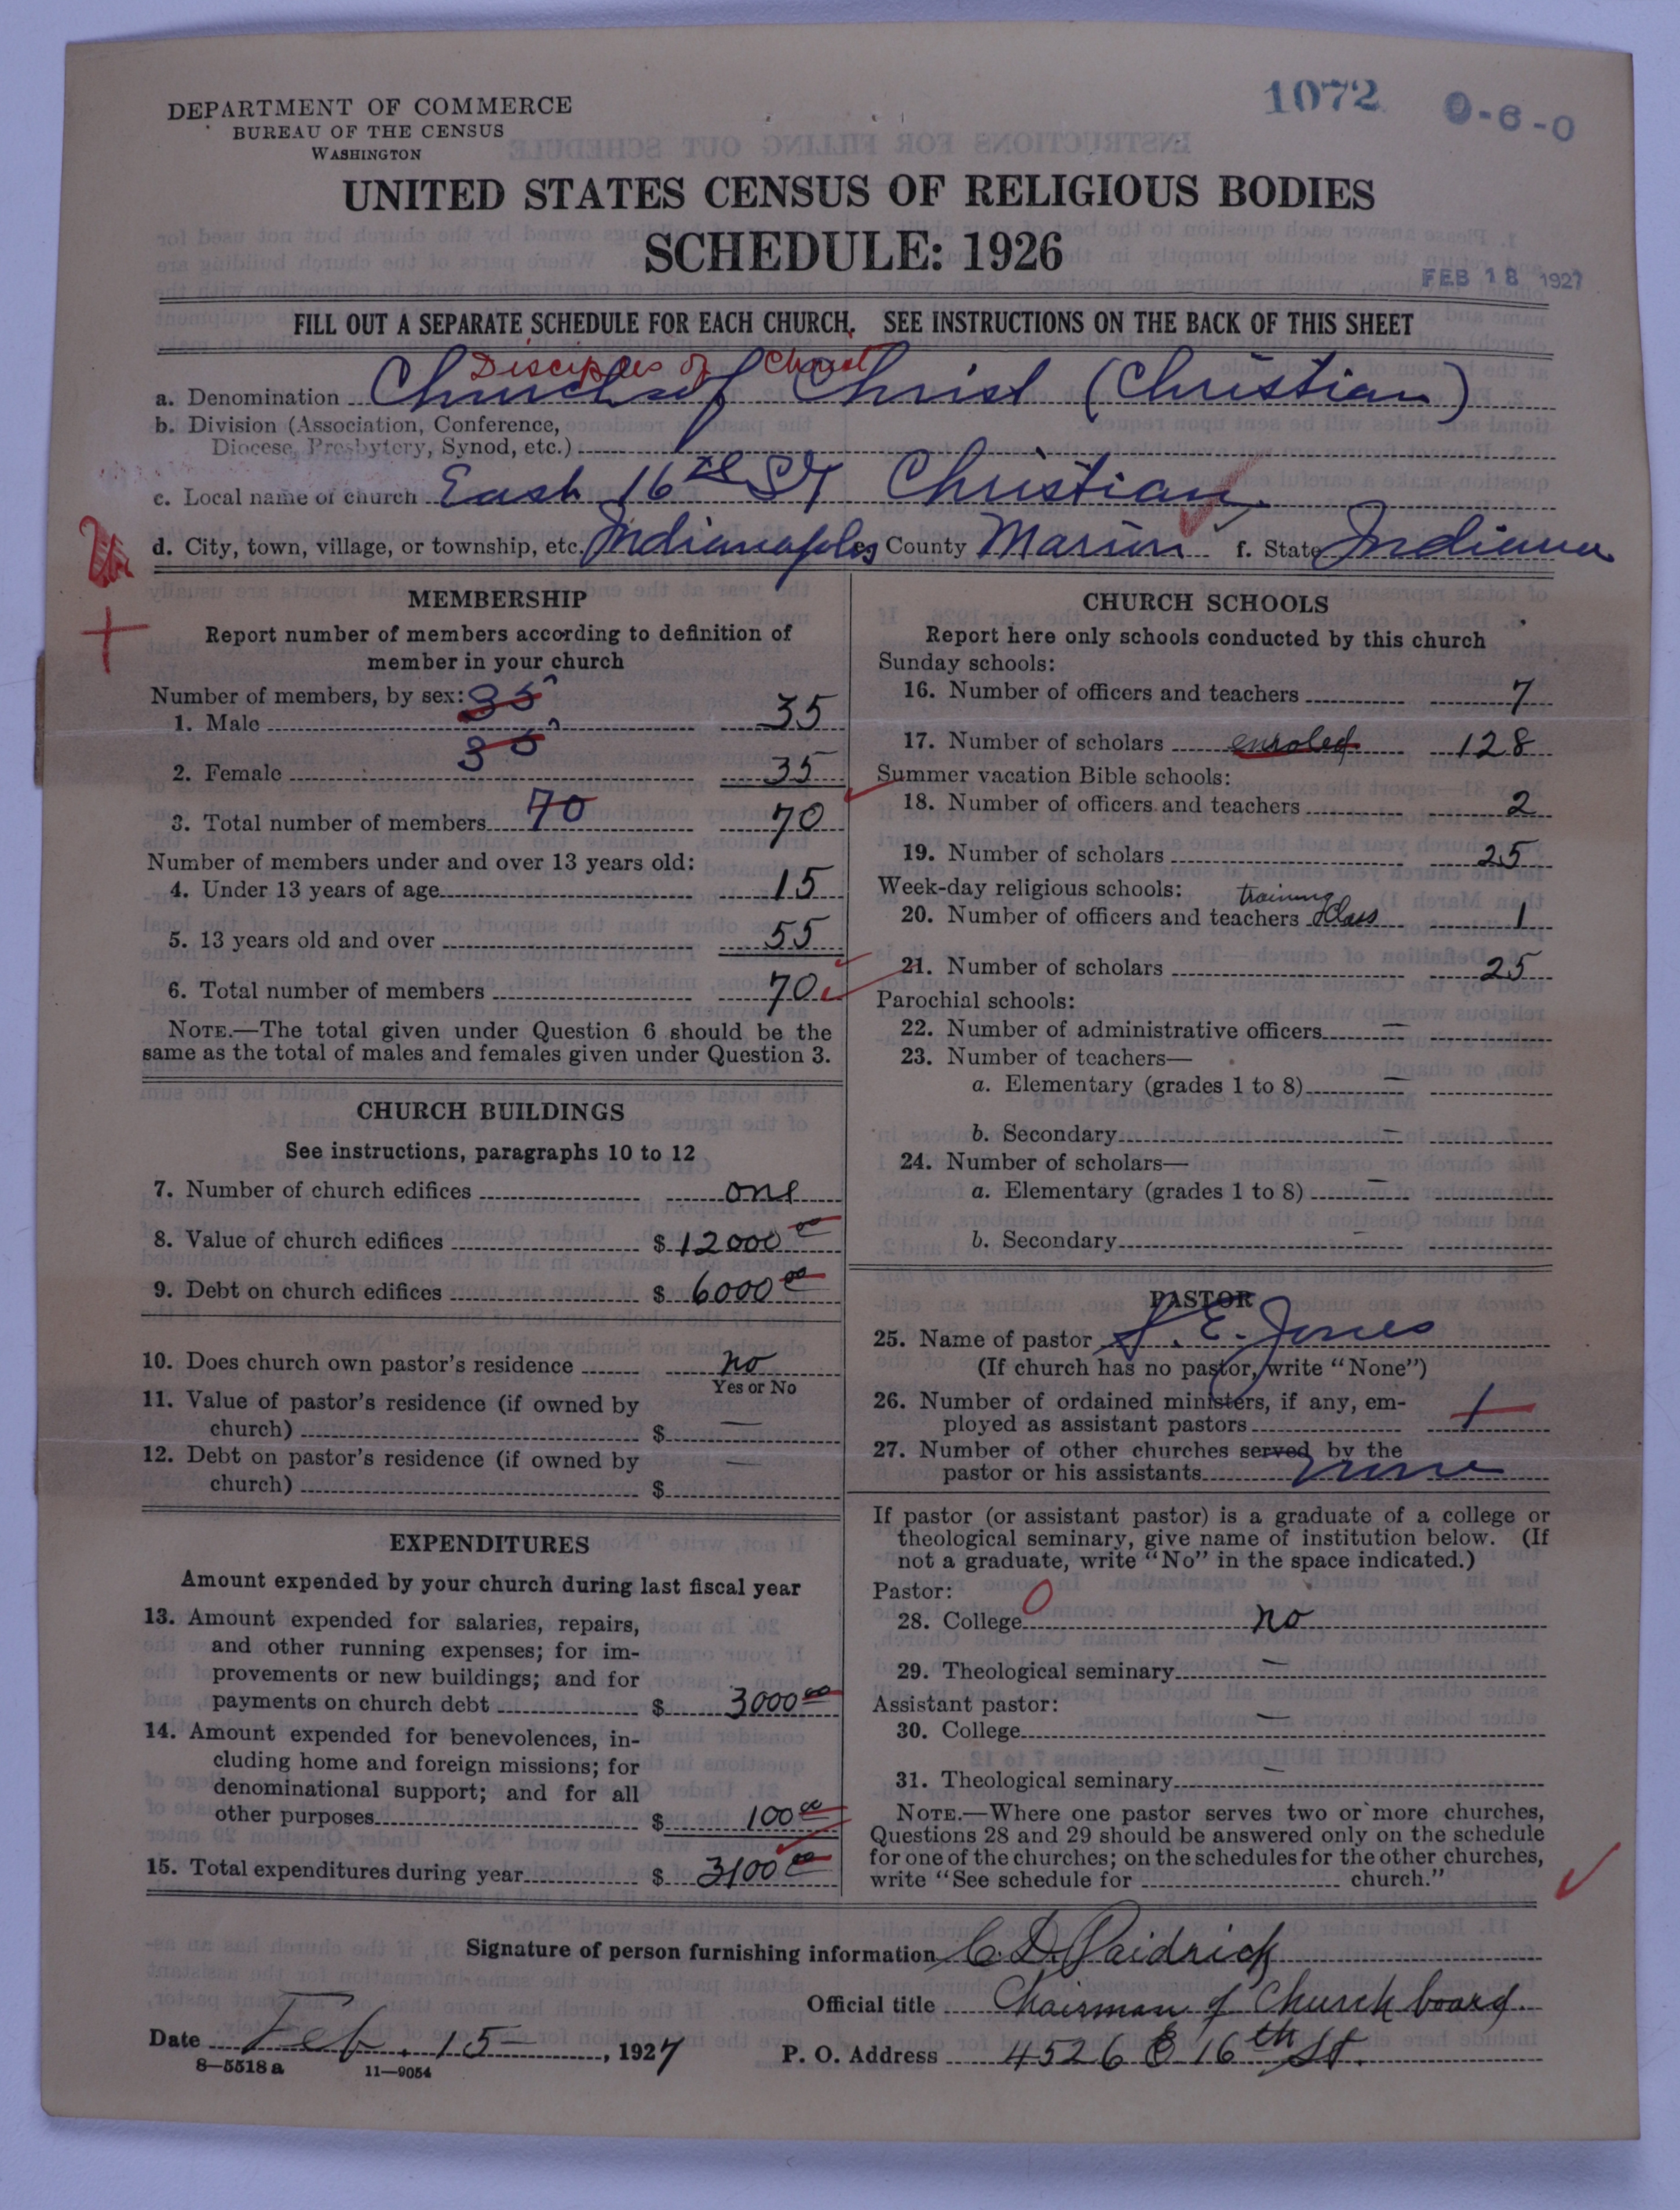 DEPARTMENT OF COMMERCE
BUREAU OF THE CENSUS
WASHINGTON
1072
0-6-0
UNITED STATES CENSUS OF RELIGIOUS BODIES
SCHEDULE: 1926
FEB 18 1927
FILL OUT A SEPARATE SCHEDULE FOR EACH CHURCH. SEE INSTRUCTIONS ON THE BACK OF THIS SHEET
Disciples of Christ
a. Denomination Church of Christ (Christian)
b. Division (Association, Conference,
Diocese, Presbytery, Synod, etc.)
c. Local name of church East 16th St Christian
d. City, town, village, or township, etc. Indianapolis e. County Marion f. State Indiana
MEMBERSHIP
Report number of members according to definition of
member in your church
Number of members, by sex: 35
1. Male 35
35
2. Female 35
3. Total number of members 70 70
Number of members under and over 13 years old:
4. Under 13 years of age 15
5. 13 years old and over 55
6. Total number of members 70
NOTE.—The total given under Question 6 should be the
same as the total of males and females given under Question 3.
CHURCH BUILDINGS
See instructions, paragraphs 10 to 12
7. Number of church edifices one
8. Value of church edifices $ 12000 00
9. Debt on church edifices $ 6000 00
10. Does church own pastor's residence no
Yes or No
11. Value of pastor's residence (if owned by
church) $ —
12. Debt on pastor's residence (if owned by
church) $ —
EXPENDITURES
Amount expended by your church during last fiscal year
13. Amount expended for salaries, repairs,
and other running expenses; for im-
provements or new buildings; and for
payments on church debt $ 3000 00
14. Amount expended for benevolences, in-
cluding home and foreign missions; for
denominational support; and for all
other purposes $ 100 00
15. Total expenditures during year $ 3100 00
CHURCH SCHOOLS
Report here only schools conducted by this church
Sunday schools:
16. Number of officers and teachers 7
17. Number of scholars enroled 128
Summer vacation Bible schools:
18. Number of officers and teachers 2
19. Number of scholars 25
Week-day religious schools: training
20. Number of officers and teachers class 1
21. Number of scholars 25
Parochial schools:
22. Number of administrative officers —
23. Number of teachers—
a. Elementary (grades 1 to 8) —
b. Secondary —
24. Number of scholars—
a. Elementary (grades 1 to 8) —
b. Secondary —
PASTOR
25. Name of pastor S. E. Jones
(If church has no pastor, write "None")
26. Number of ordained ministers, if any, em-
ployed as assistant pastors 1
27. Number of other churches served by the
pastor or his assistants none
If pastor (or assistant pastor) is a graduate of a college or
theological seminary, give name of institution below. (If
not a graduate, write "No" in the space indicated.)
Pastor: 0
28. College no
29. Theological seminary —
Assistant pastor:
30. College —
31. Theological seminary —
NOTE.—Where one pastor serves two or more churches,
Questions 28 and 29 should be answered only on the schedule
for one of the churches; on the schedules for the other churches,
write "See schedule for church."
Signature of person furnishing information C. D. Paidrick
Official title Chairman of Church board.
Date Feb. 15, 1927
P. O. Address 4526 E 16th St.
8—5518 a
11—9054